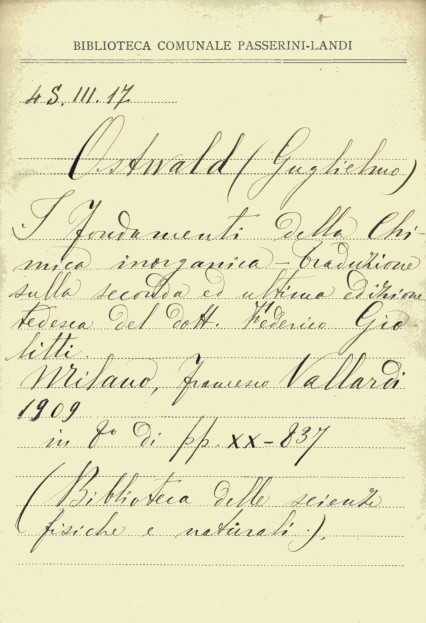 BIBLIOTECA COMUNALE PASSERINI-LANDI
4 S. III. 17
Ostwald (Guglielmo)
I fondamenti della Chi-
mica inorganica - traduzione
sulla seconda ed ultima edizione
tedesca del dott. Federico Gio-
litti.
Milano, Francesco Vallardi
1909
in 8° di pp. XX-837
(Biblioteca delle scienze
fisiche e naturali).